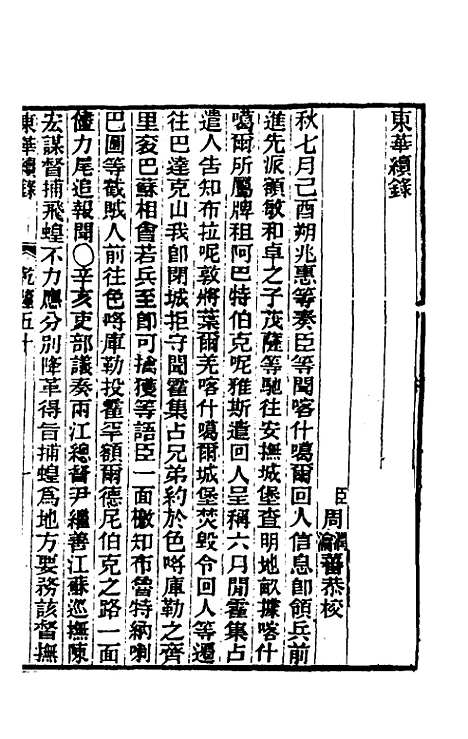 東華續錄
臣周潤蕃瀹蕃恭校
秋七月己酉朔兆惠等奏臣等聞喀什噶爾回人信息卽領兵前
進先派額敏和卓之子茂薩等馳往安撫城堡查明地畝據喀什
噶爾所屬牌租阿巴特伯克呢雅斯遣回人呈稱六月聞霍集占
遣人告知布拉呢敦將葉爾羌喀什噶爾城堡焚毀令回人等遷
往巴達克山我卽閉城拒守聞霍集占兄弟約於色咯庫勒之齊
里袞巴蘇相會若兵至卽可擒獲等語臣一面檄知布魯特納喇
巴圖等截賊人前往色咯庫勒投霍罕額爾德尼伯克之路一面
儘力尾追報聞○辛亥吏部議奏兩江總督尹繼善江蘇巡撫陳
宏謀督捕飛蝗不力應分別降革得旨捕蝗爲地方要務該督撫
東華續錄 乾隆五十 一